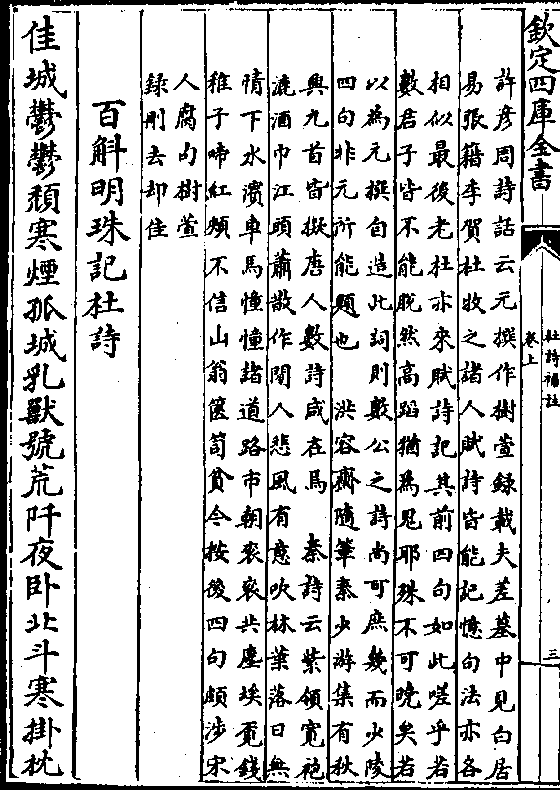 欽定四庫全書
杜詩補註
卷上
三
許彥周詩話云元撰作樹萱録載夫差墓中見白居
易張籍李賀杜牧之諸人賦詩皆能記憶句法亦各
相似最後老杜亦來賦詩記其前四句如此嗟乎若
數君子皆不能脫然高蹈猶為鬼耶殊不可曉矣若
以為元撰自造此詞則數公之詩尚可庶幾而少陵
四句非元所能題也 洪容齋隨筆秦少游集有秋
興九首皆擬唐人數詩咸在焉 秦詩云紫領寛袍
漉酒巾江頭蕭散作閒人悲風有意吹林葉落日無
情下水濱車馬憧憧諸道路市朝衮衮共塵埃覓錢
稚子啼紅頰不信山翁篋笥貧今按後四句頗涉宋
人腐句樹萱
録刪去却佳
百斛明珠記杜詩
佳城鬱鬱頹寒煙孤城乳獸號荒阡夜卧北斗寒掛枕